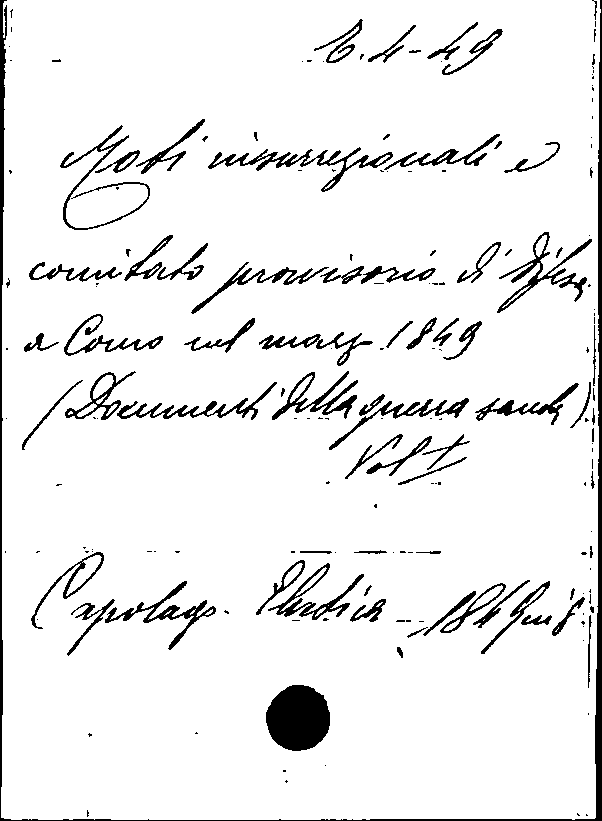 B.4-49
Moti insurrezionali e
comitato provvisorio di difesa
a Como nel marzo 1849
(Documenti della guerra santa)
Vol I
Capolago - Elvetica - 1849 in 8